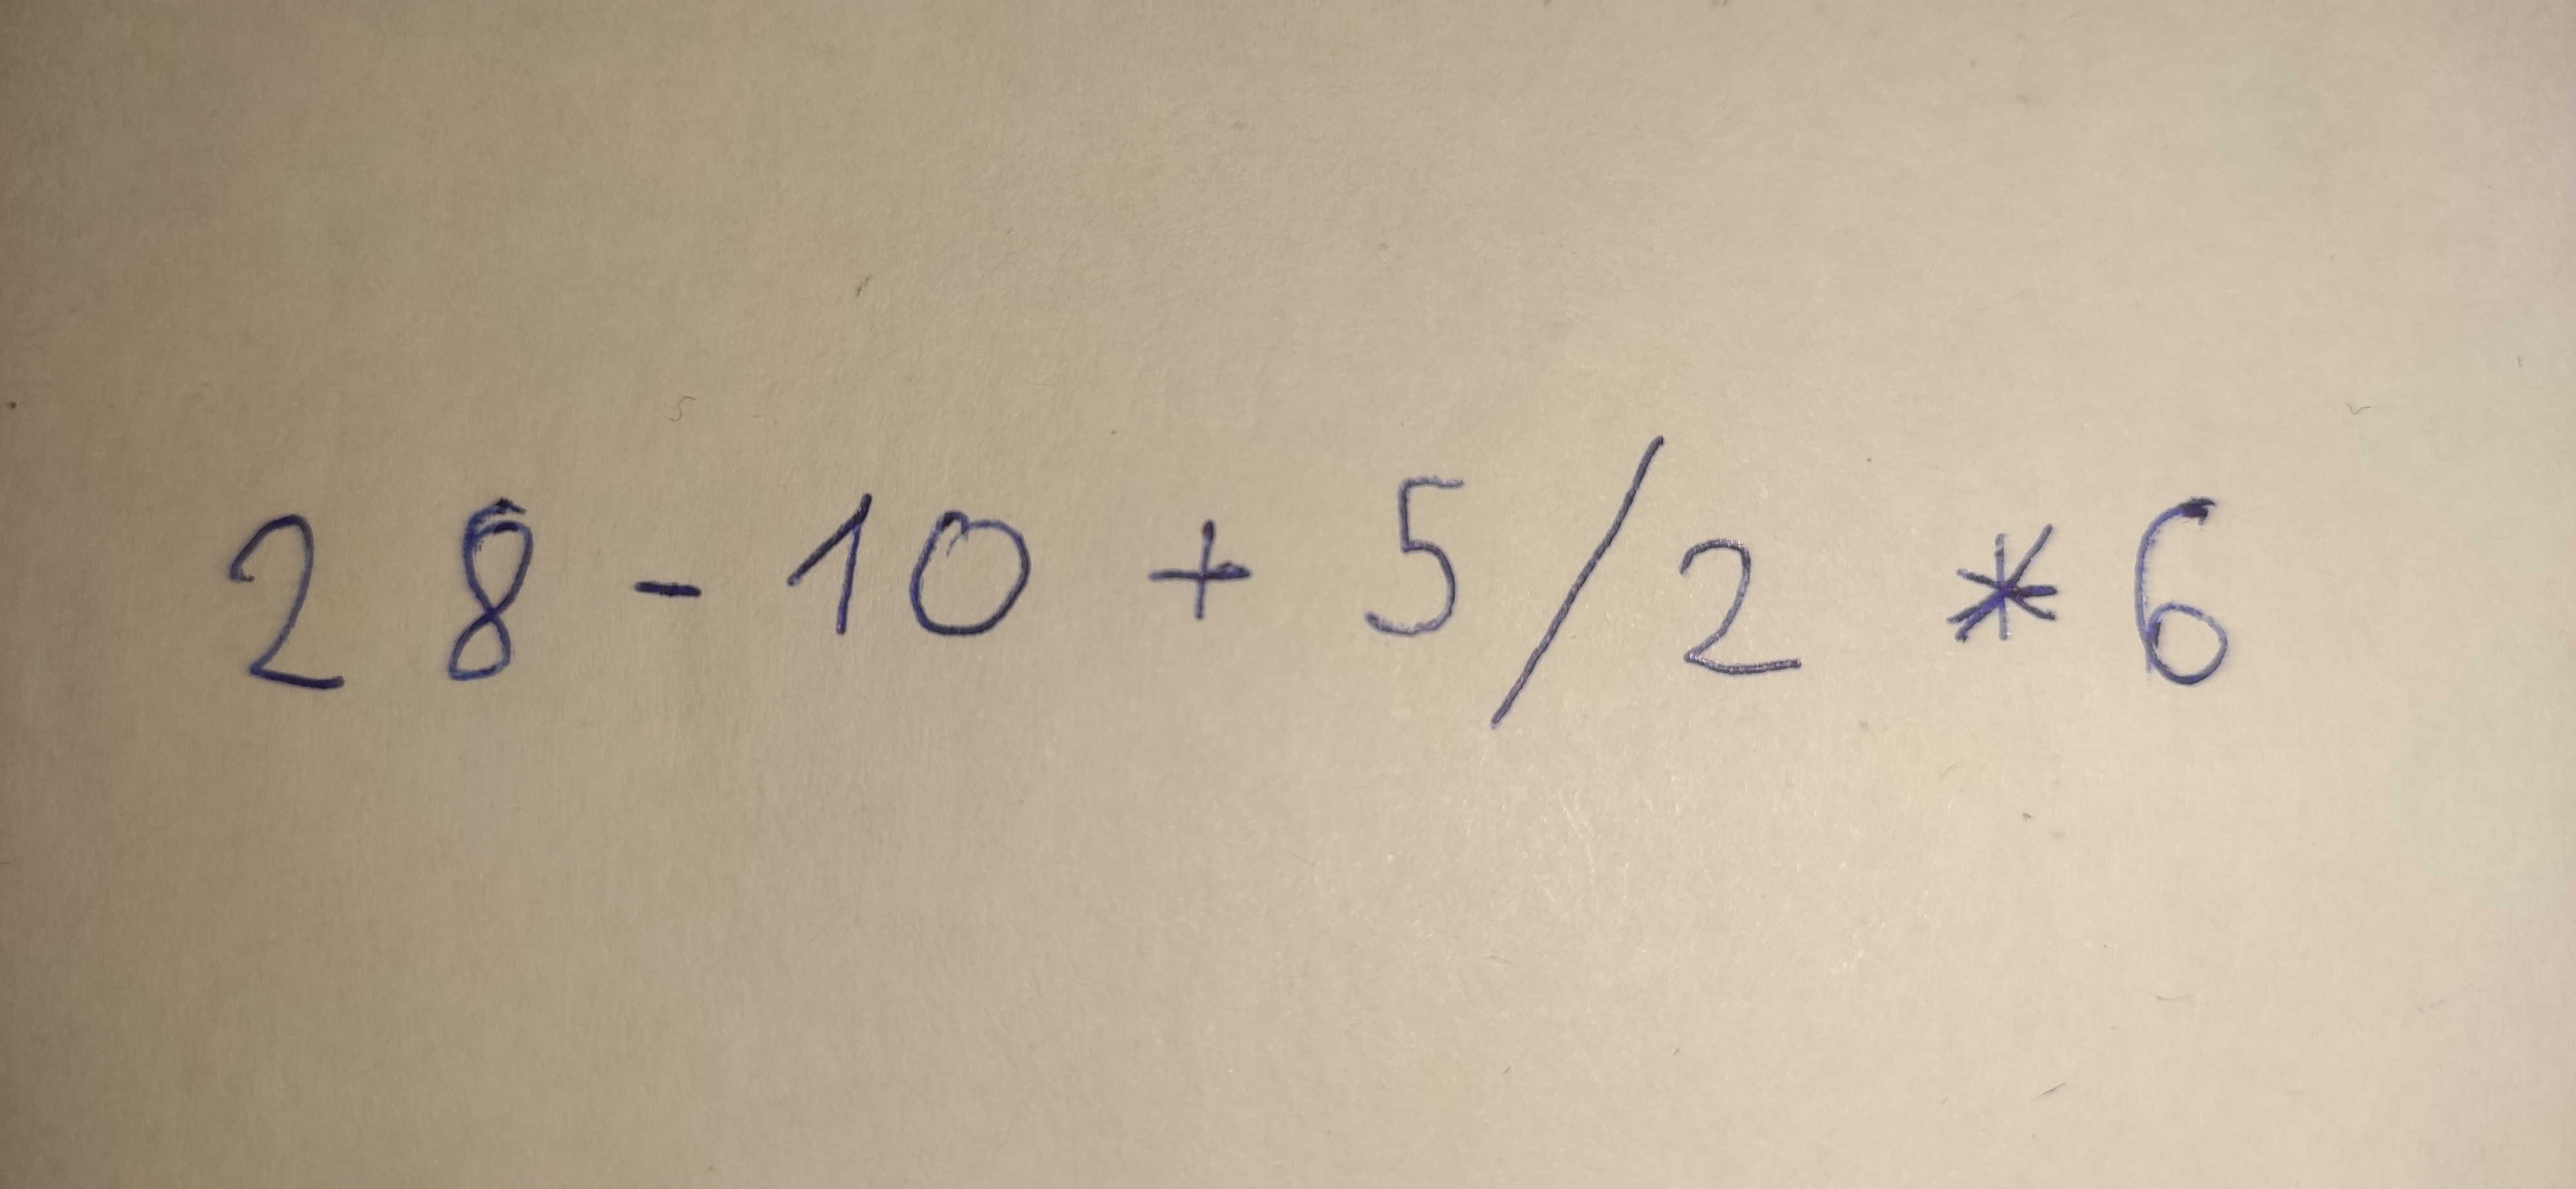 28 - 10 + 5/2 * 6